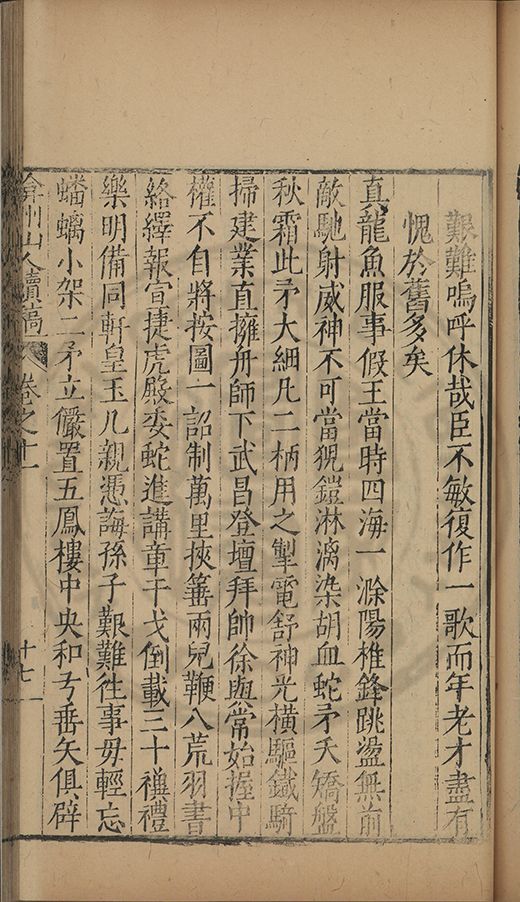 艱難嗚呼休哉臣不敏復作一歌而年老才盡有
愧於舊多矣
真龍魚服事假王當時四海一滁陽椎鋒跳盪無前
敵馳射威神不可當猊鎧淋漓染胡血蛇矛夭矯盤
秋霜此矛大細凡二柄用之掣電舒神光橫驅鐵騎
掃建業直擁舟師下武昌登壇拜帥徐與常始握中
權不自將按圖一詔制萬里挾籌兩兒鞭八荒羽書
絡繹報宣捷虎殿委蛇進講章干戈倒載三十禩禮
樂明備同軒皇玉几親憑誨孫子艱難往事毋輕忘
蟠螭小架二矛立儼置五鳳樓中央和弓垂矢俱辟
弇州山人續稿 卷之十一 十七